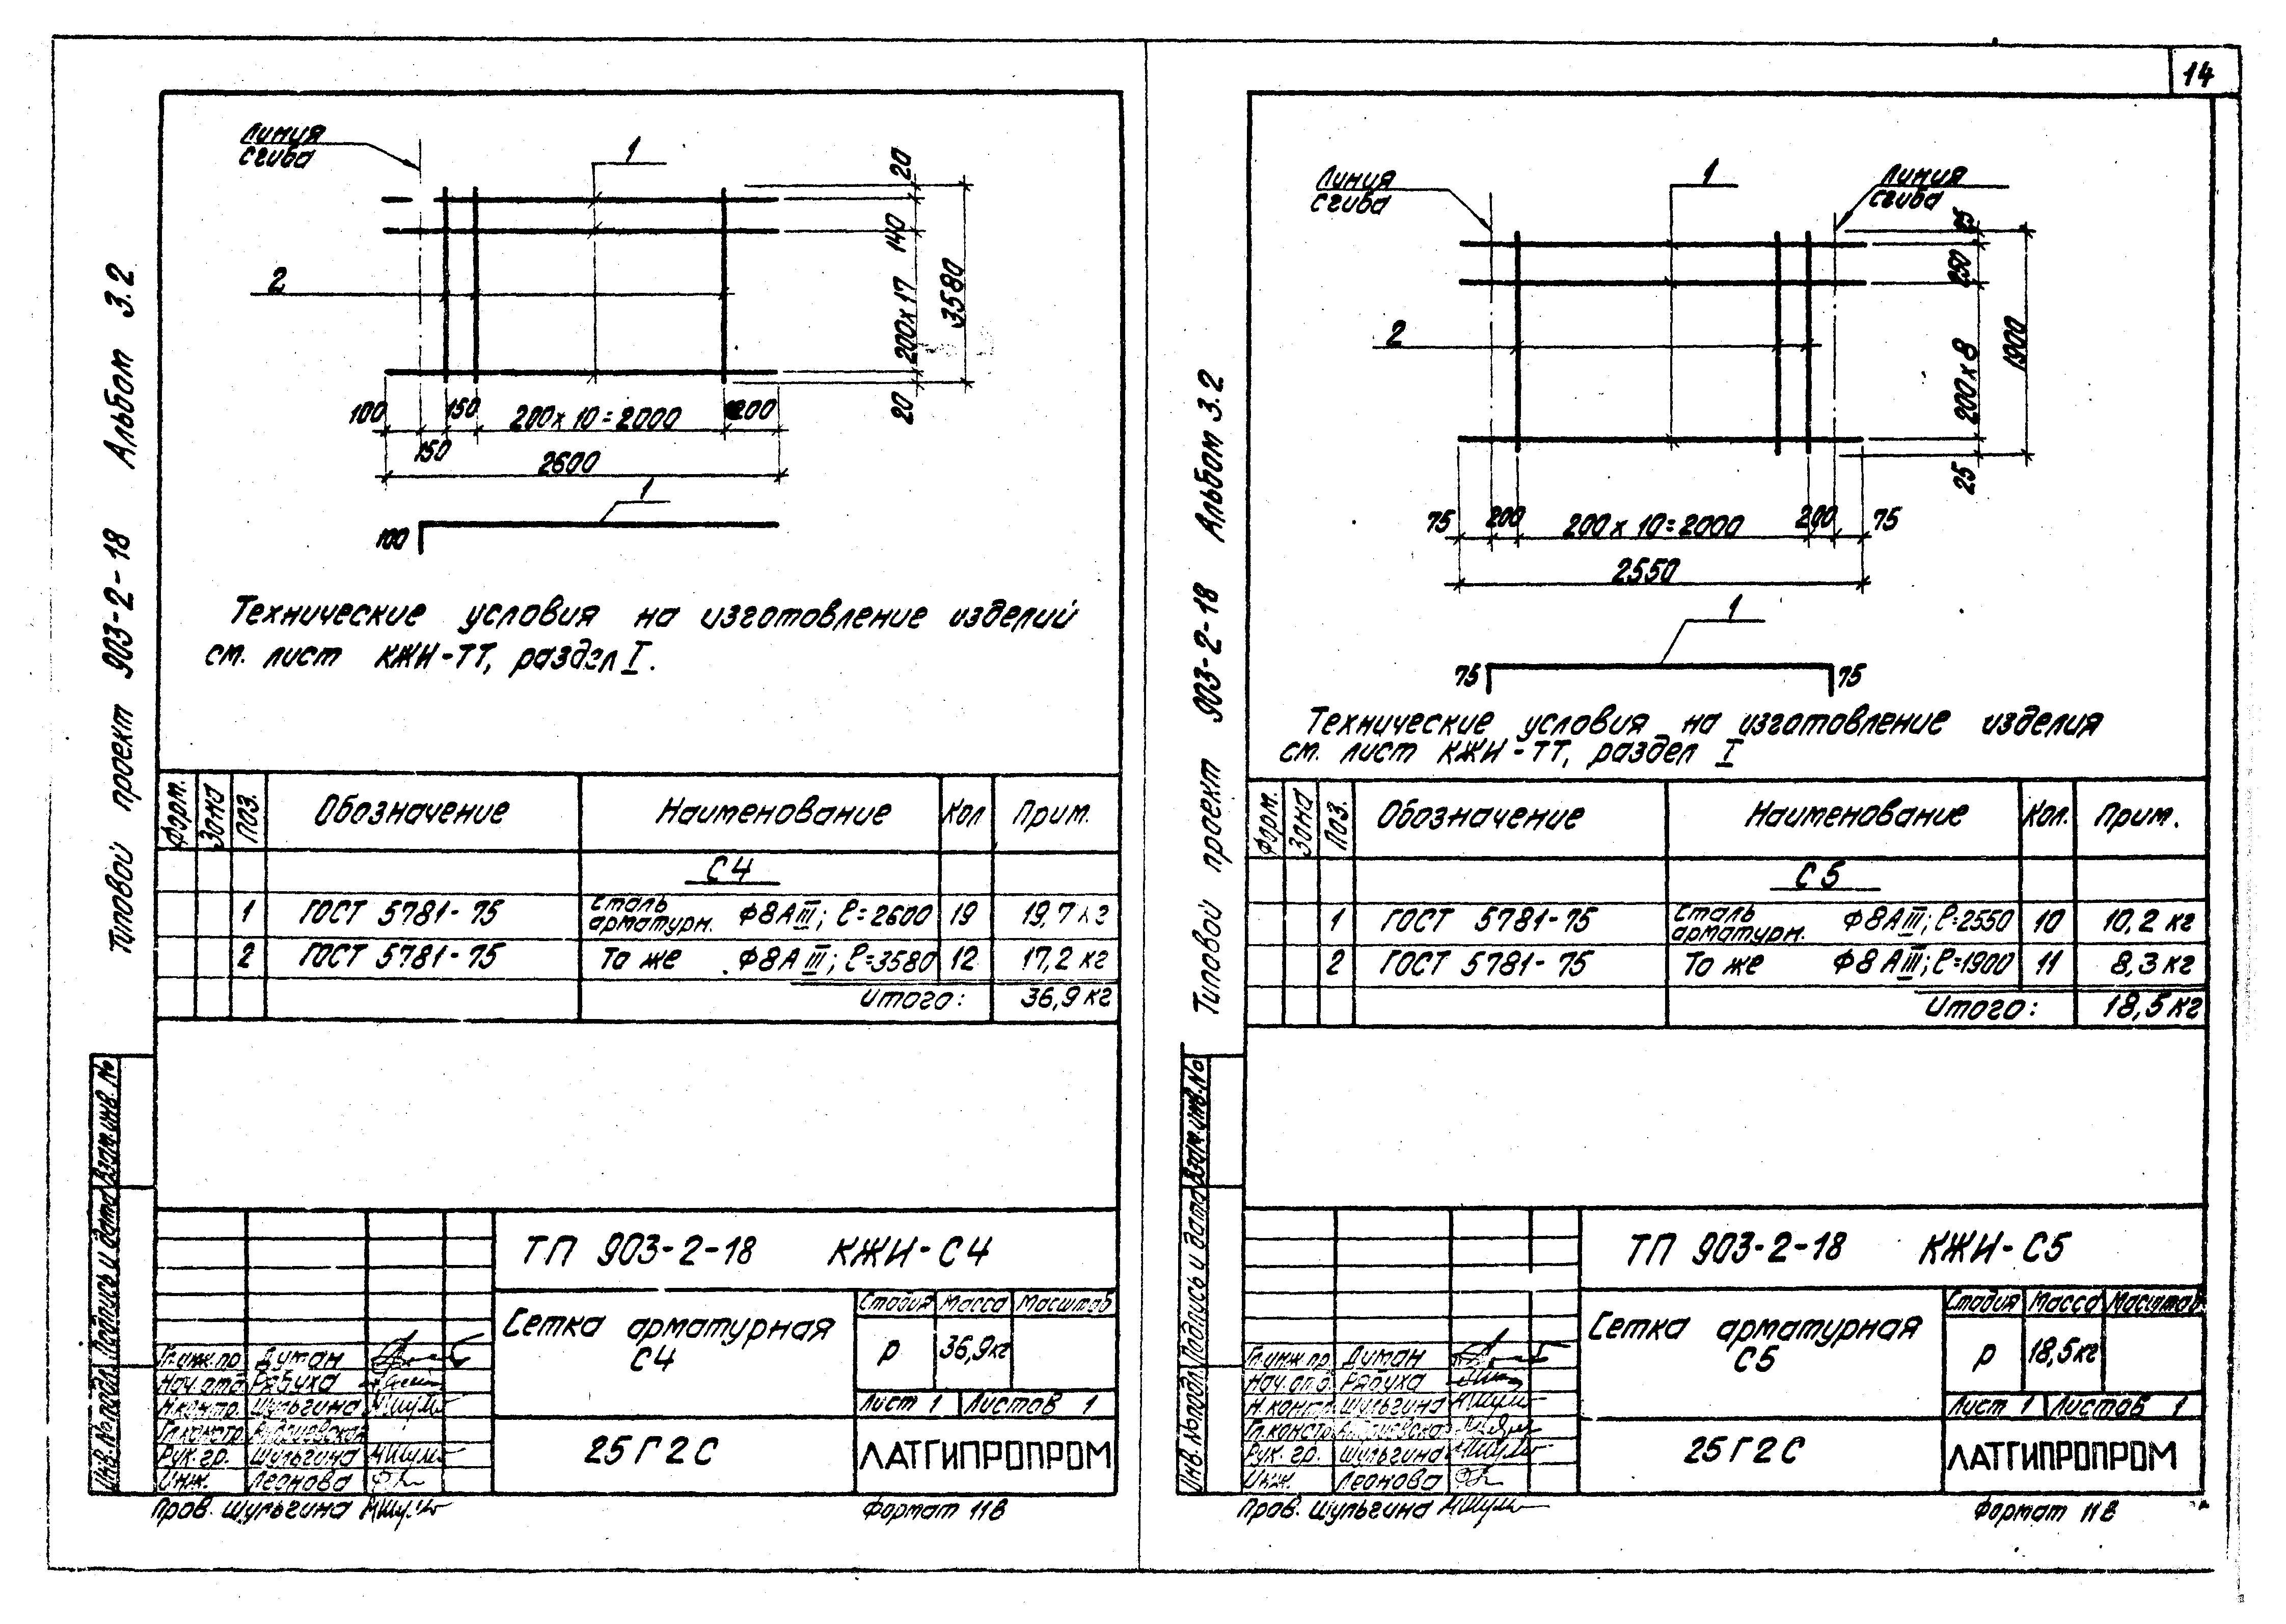 14
Альбом 3.2
Типовой проект 903-2-18
Линия
сгиба
1
2
20
140
200х17
3580
20
100
150
150
200х10=2000
200
2600
1
100
Технические условия на изготовление изделий
см. лист КЖИ-ТТ, раздел I.
Форм. Зона Поз. Обозначение Наименование Кол Прим.
С4
1 ГОСТ 5781-75 Сталь арматурн. Ф8АIII; ℓ=2600 19 19,7 кг
2 ГОСТ 5781-75 То же Ф8АIII; ℓ=3580 12 17,2 кг
Итого: 36,9 кг
Взам.инв.№
Подпись и дата
Инв.№подл.
ТП 903-2-18 КЖИ-С4
Сетка арматурная
С4
Стадия Масса Масштаб
Р 36,9кг
Лист 1 Листов 1
25Г2С
ЛАТГИПРОПРОМ
Гл.инж.пр Дутан
Нач.отд. Рябуха
Н.контр. Шульгина
Гл.констр.
Рук.гр. Шульгина
Инж. Леонова
Пров. Шульгина
Формат 11В
Альбом 3.2
Типовой проект 903-2-18
Линия
сгиба
1
Линия
сгиба
2
25
250
200х8
1900
25
75
200
200х10=2000
200
75
2550
1
75
75
Технические условия на изготовление изделия
см. лист КЖИ-ТТ, раздел I
Форм. Зона Поз. Обозначение Наименование Кол. Прим.
С5
1 ГОСТ 5781-75 Сталь арматурн. Ф8АIII; ℓ=2550 10 10,2 кг
2 ГОСТ 5781-75 То же Ф8АIII; ℓ=1900 11 8,3 кг
Итого: 18,5 кг
Взам.инв.№
Подпись и дата
Инв.№подл.
ТП 903-2-18 КЖИ-С5
Сетка арматурная
С5
Стадия Масса Масштаб
Р 18,5кг
Лист 1 Листов 1
25Г2С
ЛАТГИПРОПРОМ
Гл.инж.пр. Дутан
Нач.отд. Рябуха
Н.контр. Шульгина
Гл.констр.
Рук.гр. Шульгина
Инж. Леонова
Пров. Шульгина
Формат 11В